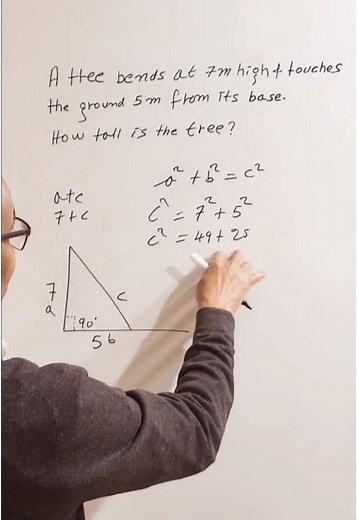 A tree bends at 7m high & touches
the ground 5m from its base.
How tall is the tree?
a² + b² = c²
a+c
7+c
c² = 7² + 5²
c² = 49 + 25
7
a
c
90°
5 b